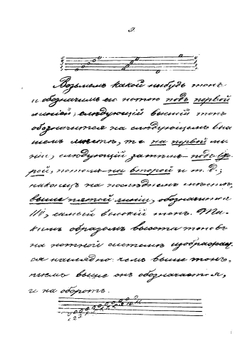 Возьмемъ какой нибудь тонъ
и обозначимъ его нотою подъ первой
линіей; слѣдующій высшій тонъ
обозначится на слѣдующемъ выс
шемъ мѣстѣ, т.е. на первой ли
ніи; слѣдующій затѣмъ подъ вто
рой, потомъ на второй и т. д.;
наконецъ на послѣднемъ мѣстѣ,
выше пятой линіи, обозначится
самый высокій тонъ. Та-
кимъ образомъ высота тоновъ
на нотной системѣ изображает
ся наглядно: чѣмъ выше тонъ,
тѣмъ выше онъ обозначается,
и на оборотъ.